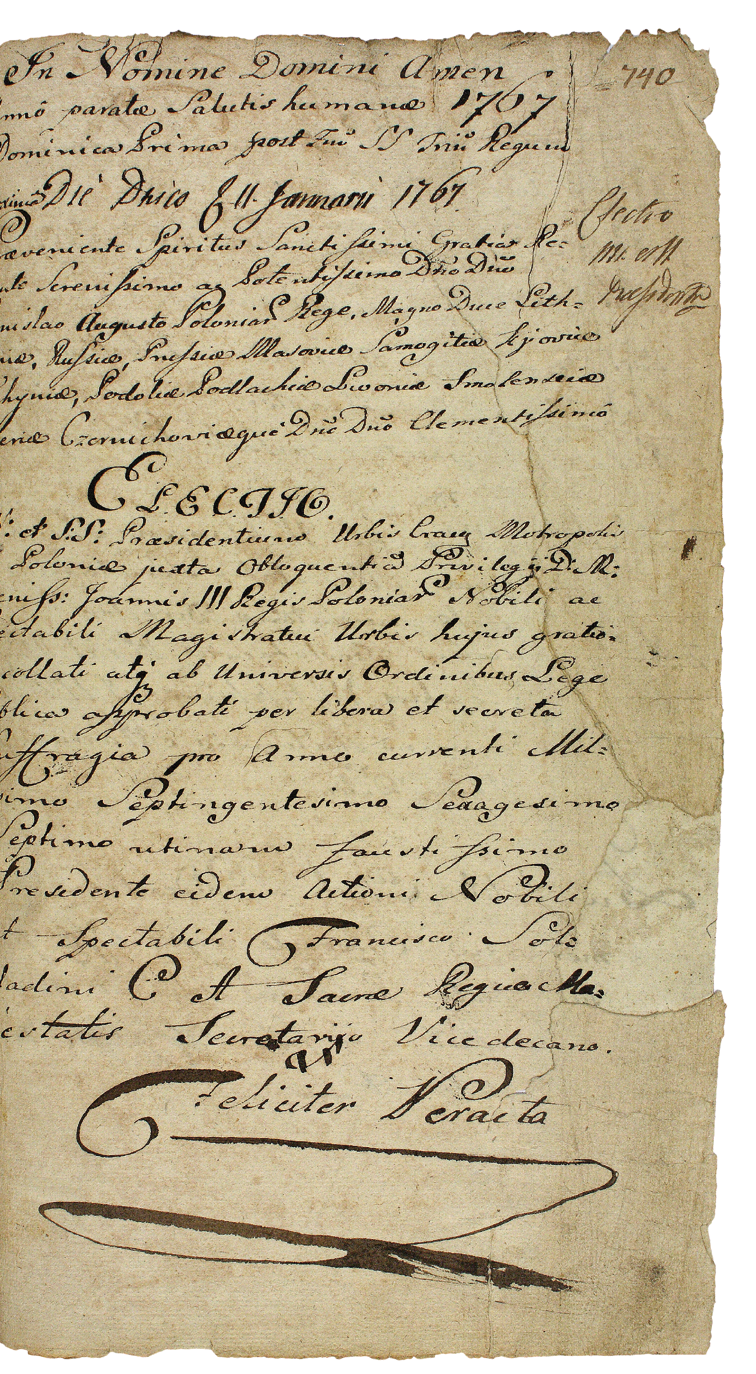 In Nomine Domini Amen
740
nnô paratæ Salutis humanæ 1767
Dominica Prima post SS Triũ Regum
Die Dnico 11 Januarii 1767
Electio
Præsidentis
æveniente Spiritus Sanctissimi Gratia Re=
nte Serenissimo ac Potentissimo Dño Dño
nislao Augusto Poloniar Rege, Magno Duce Lith=
niæ, Russiæ, Prussiæ Masoviæ Samogitiæ Kijoviæ
hyniæ, Podoliæ Podlachiæ Livoniæ Smolensciæ
eriæ Czernichoviæque Dño Dño Clementissimô
ELECTIO.
et S:S: Præsidentium Urbis Crac Metropolis
Poloniæ juxta Obloquentiã Privilegij D: M:
eniss: Joannis III Regis Poloniar Nobili ac
ectabili Magistratui Urbis hujus gratio=
collati atq ab Universis Ordinibus Lege
blica approbati per libera et secreta
uffragia pro Anno currenti Mil=
simo Septingentesimo Sexagesimo
Septimo utinam faustissimo
Presidente eidem Actioni Nobili
t Spectabili Francisco Sol=
adini C A Sacræ Regiæ Ma=
estatis Secretarijo Vice decano.
Feliciter Peracta